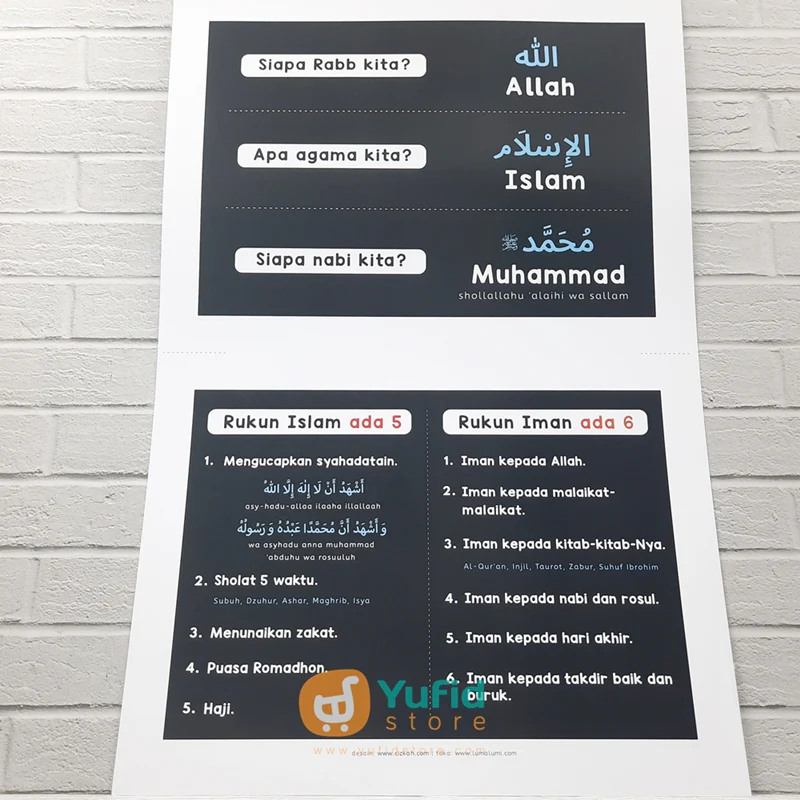 Siapa Rabb kita?
الله
Allah
Apa agama kita?
الإِسْلَام
Islam
Siapa nabi kita?
مُحَمَّد ﷺ
Muhammad
shollallahu 'alaihi wa sallam
Rukun Islam ada 5
1. Mengucapkan syahadatain.
أَشْهَدُ أَنْ لَا إِلٰهَ إِلَّا اللهُ
asy-hadu-allaa ilaaha illallaah
وَ أَشْهَدُ أَنَّ مُحَمَّدًا عَبْدُهُ وَ رَسُولُهُ
wa asyhadu anna muhammad
'abduhu wa rosuuluh
2. Sholat 5 waktu.
Subuh, Dzuhur, Ashar, Maghrib, Isya
3. Menunaikan zakat.
4. Puasa Romadhon.
5. Haji.
Rukun Iman ada 6
1. Iman kepada Allah.
2. Iman kepada malaikat-
malaikat.
3. Iman kepada kitab-kitab-Nya.
Al-Qur'an, Injil, Taurot, Zabur, Suhuf Ibrohim
4. Iman kepada nabi dan rosul.
5. Iman kepada hari akhir.
6. Iman kepada takdir baik dan
buruk.
Yufid
store
www.yufidstore.com
desain: www.cizkah.com | toko: www.lumalumi.com